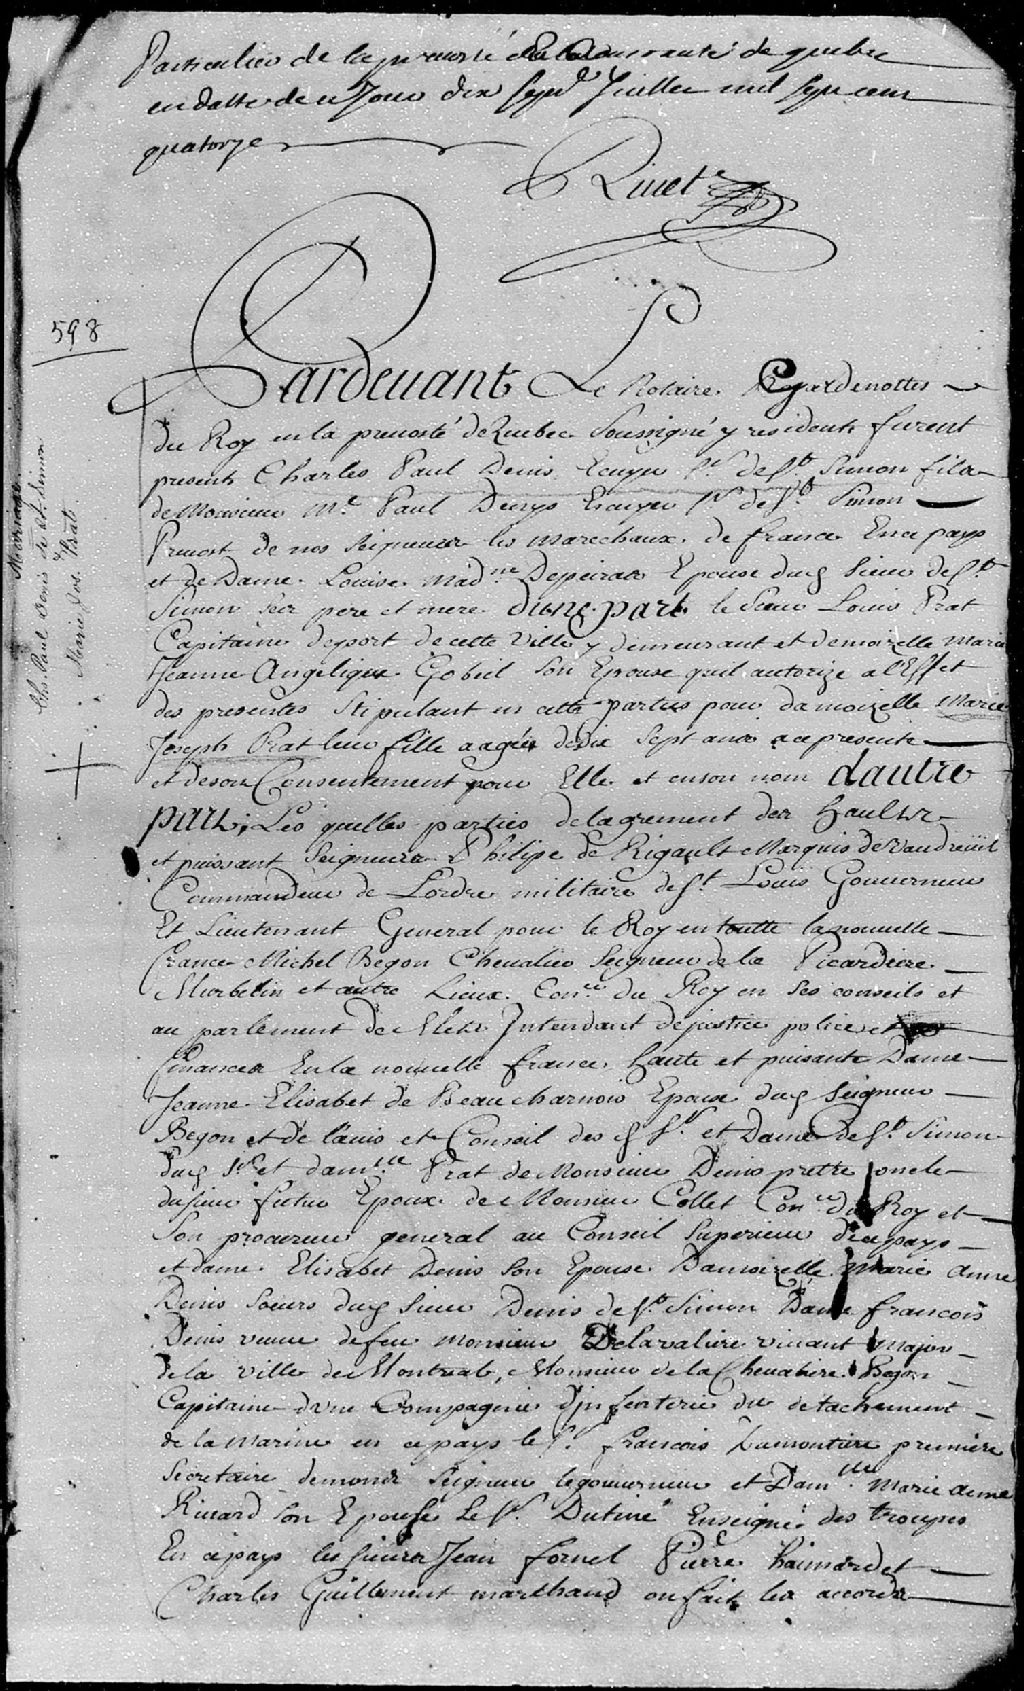 Particulier de la prevosté de quebec
en datte de ce Jour dix sept Juillet mil sept cent
quatorze
Rivet
598
Mariage
Chs. Paul Denis de St. Simon
&
Marie Jos. Prat
Pardeuant Le Notaire Gardenottes
du Roy en la preuosté de Quebec Soussigné y residente furent
presents Charles Paul Denis Ecuyer Sr de St Simon fils
de Monsieur Mre Paul Denys Ecuyer Sr de St Simon
Preuost de nos Seigneurs les marechaux de france En ce pays
et de Dame Louise Madne Depeiras Epouse dud Sieur de St
Simon ses pere et mere dune part le Sieur Louis Prat
Capitaine de port de cette ville y demeurant et demoizelle Marie
Jeanne Angelique Gobeil Son Epouse quil autorize a lEffet
des presentes Stipulant en cette partie pour damoizelle Marie
Joseph Prat leur fille aagée de dix Sept ans a ce presente
et de son Consentement pour Elle et en son nom dautre
part; Les quelles parties de lagrement des haults
et puissant Seigneurs Philipe de Rigault Marquis de Vaudreüil
Commandeur de Lordre militaire de St Louis Gouuerneur
Et Lieutenant General pour le Roy en toutte la nouuelle
france Michel Begon Cheualier Seigneur de la Picardiere
Murbelin et autre Lieux Coner du Roy en Ses conseils et
au parlement de Metz Intendant de justice police et
finances En la nouuelle france haute et puisante Dame
Jeanne Elisabet de Beaucharnois Epouse dud Seigneur
Begon et de lauis et Conseil des d Sr et Dame de St Simon
dud Sr et damlle Prat de Monsieur Denis pretre oncle
du sieur futur Epoux de Monsieur Collet Coner du Roy et
Son procureur general au Conseil Superieur de ce pays
et dame Elisabet Denis Son Epouse Damoizelle Marie Anne
Denis Soeurs dud Sieur Denis de St Simon Dame francois
Denis veuue de feu monsieur Delavaliere viuant major
de la ville de Montreal, Monsieur de la Cheualiere Begon
Capitaine dvne Compagnie dinfenterie du detachement
de la marine en ce pays le Sr francois Lamontiere premiere
Secretaire de mondt Seigneur le gouuerneur et Damlle Marie anne
Riuard Son Epouse Le Sr Dutiné Enseigne des troupes
En ce pays les sieurs Jean fornel Pierre haimard et
Charles Guillement marchand on fait les accords